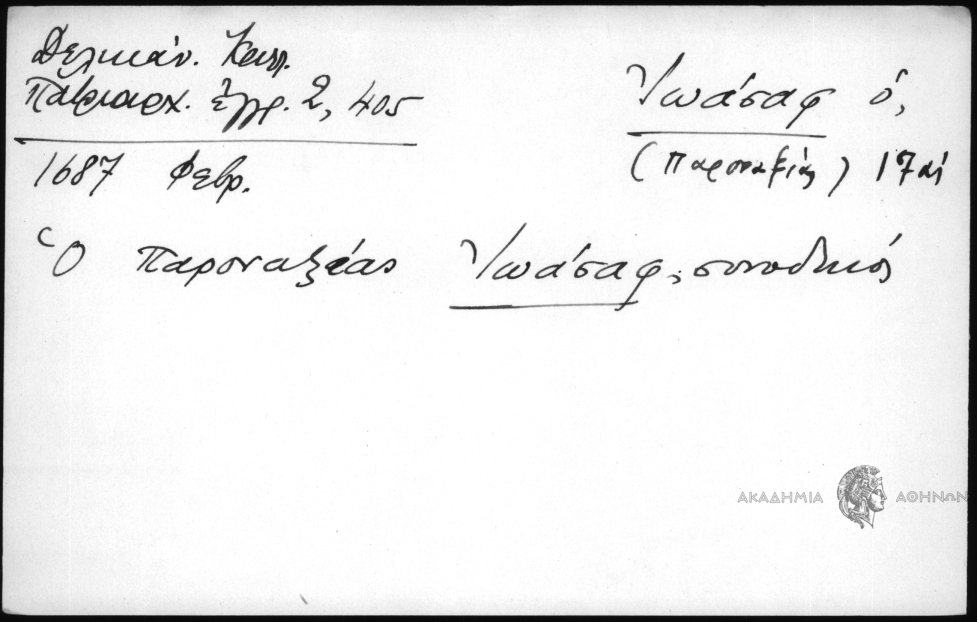 Δελικάν. Καλλ.
Πατριαρχ. ἔγγρ. 2, 405
1687 Φεβρ.
Ἰωάσαφ ὁ,
(Παροναξίας) 17 αἰ
Ὁ Παροναξίας Ἰωάσαφ, συνοδικός
ΑΚΑΔΗΜΙΑ ΑΘΗΝΩΝ